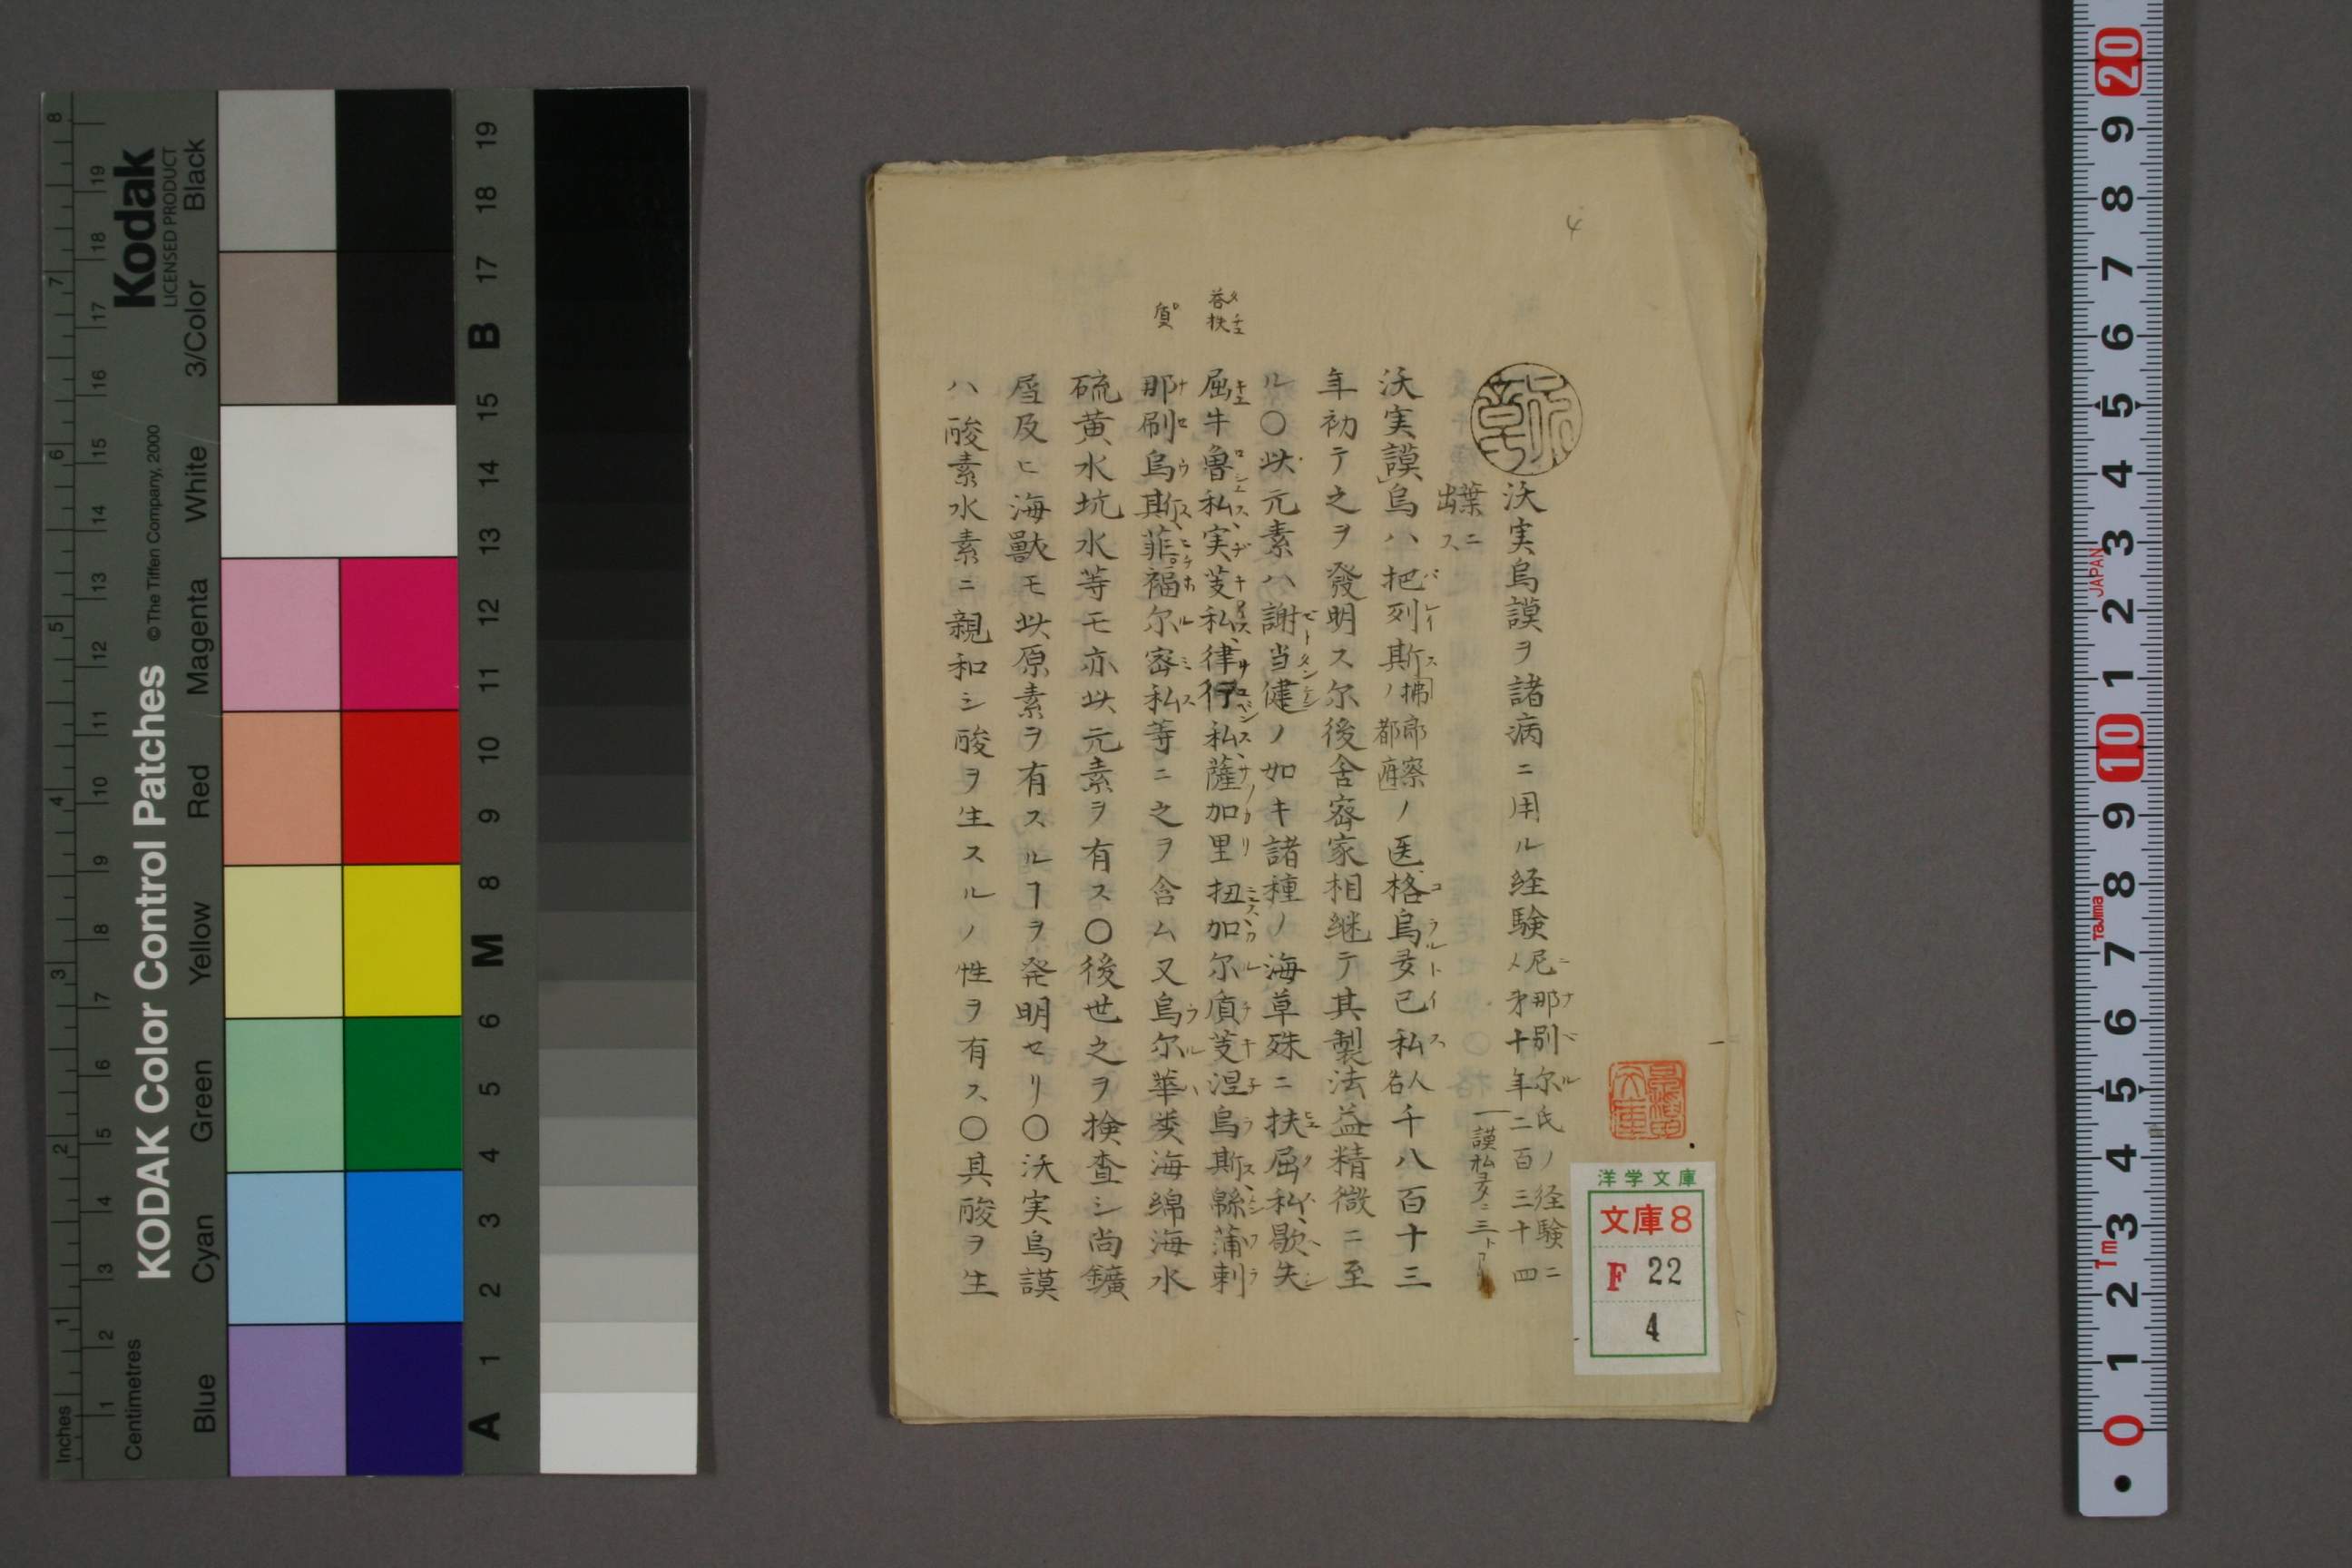 4
沃実烏謨ヲ諸病ニ用ル経験
尼那別尓氏ノ経験ニ
メ才十年二百三十四
葉ニ
出ス
沃実謨烏ハ把列斯ノ拂郎察ノ都府ノ医格烏爻已私人名千八百十三
年初テ之ヲ發明ス尓後舎密家相継テ其製法益精微ニ至
ル〇此元素ハ謝当健ノ如キ諸種ノ海草殊ニ扶屈私、歇失
屈牛魯私実芰私律私薩加里扭加尓質芰涅烏斯緜蒲剌
那刷烏斯菲福尓密私等ニ之ヲ含ム又烏尓華類海綿海水
硫黄水坑水等モ亦此元素ヲ有ス〇後世之ヲ検査シ尚鑛
属及ヒ海獣モ此原素ヲ有スルヿヲ発明セリ〇沃実烏謨
ハ酸素水素ニ親和シ酸ヲ生スルノ性ヲ有ス〇其酸ヲ生
洋学文庫
文庫8
F 22
4
KODAK Color Control Patches
© The Tiffen Company, 2000
Kodak
LICENSED PRODUCT
Inches
Centimetres
Blue
Cyan
Green
Yellow
Red
Magenta
White
3/Color
Black
1 2 3 4 5 6 7 8
1 2 3 4 5 6 7 8 9 10 11 12 13 14 15 16 17 18 19
A 1 2 3 4 5 6 M 8 9 10 11 12 13 14 15 B 17 18 19
20 9 8 7 6 5 4 3 2 1 10 9 8 7 6 5 4 3 2 1 0
JAPAN
Tajima
Tm